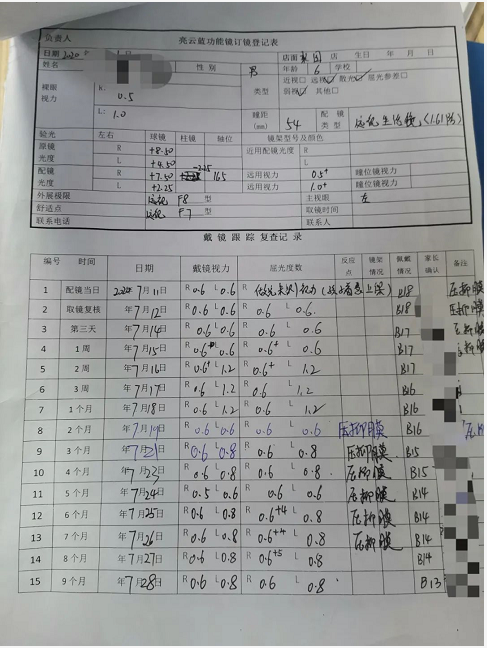 负责人 亮云蓝功能镜订镜登记表
日期 2020年 月 日 店面 店 生日 年 月 日
姓名 性别 男 年龄 6 学校
裸眼视力 R: 0.5 L: 1.0 类型 近视□ 远视☑ 散光☑ 屈光参差□ 弱视☑ 其他□
瞳距(mm) 54 配镜类型
验光 左右 球镜 柱镜 轴位 镜架型号及颜色
原镜光度 R +8.50 近用配镜光度 R
L +4.50 L
配镜光度 R +7.50 -2.25 165 远用视力 0.5+ 瞳位镜视力
L +2.25 远用视力 1.0+ 瞳位镜视力
外展极限 远视 F8 型 主视眼 左
舒适点 远视 F7 型 取镜时间
联系电话 联系人
戴镜跟踪复查记录
编号 时间 日期 戴镜视力 屈光度数 反应点 镜架情况 佩戴情况 家长确认 备注
1 配镜当日 年7月11日 R 0.6 L 0.6 R L B18 压抑膜
2 取镜复核 年7月12日 R 0.6 L 0.6 R 0.6 L 0.6. B18 压抑膜
3 第三天 年7月14日 R 0.6 L 0.6 R 0.6 L 0.6 B17
4 1周 年7月15日 R 0.6+ L 0.6 R 0.6+ L 0.6 B17
5 2周 年7月16日 R 0.6+ L 1.2 R 0.6+ L 1.2 B17
6 3周 年7月17日 R 0.6 L 1.2 R 0.6 L 1.2 B16
7 1个月 年7月18日 R 0.6 L 1.2 R 0.6 L 1.2 B16
8 2个月 年7月19日 R 0.6 L 0.6 R 0.6 L 0.6 压抑膜 B16
9 3个月 年7月21日 R 0.6 L 0.8 R 0.6 L 0.8 压抑膜 B15
10 4个月 年7月22日 R 0.6 L 0.8 R 0.6 L 0.8 压抑膜 B15
11 5个月 年7月24日 R 0.5 L 0.6 R 0.6 L 0.6 压抑膜 B14
12 6个月 年7月25日 R 0.6 L 0.8 R 0.6+4 L 0.8 压抑膜 B14
13 7个月 年7月26日 R 0.6 L 0.8 R 0.6+4 L 0.8 压抑膜 B14
14 8个月 年7月27日 R 0.6 L 0.8 R 0.6+5 L 0.8 B14
15 9个月 年7月28日 R 0.6 L 0.8 R 0.6 L 0.8 B13